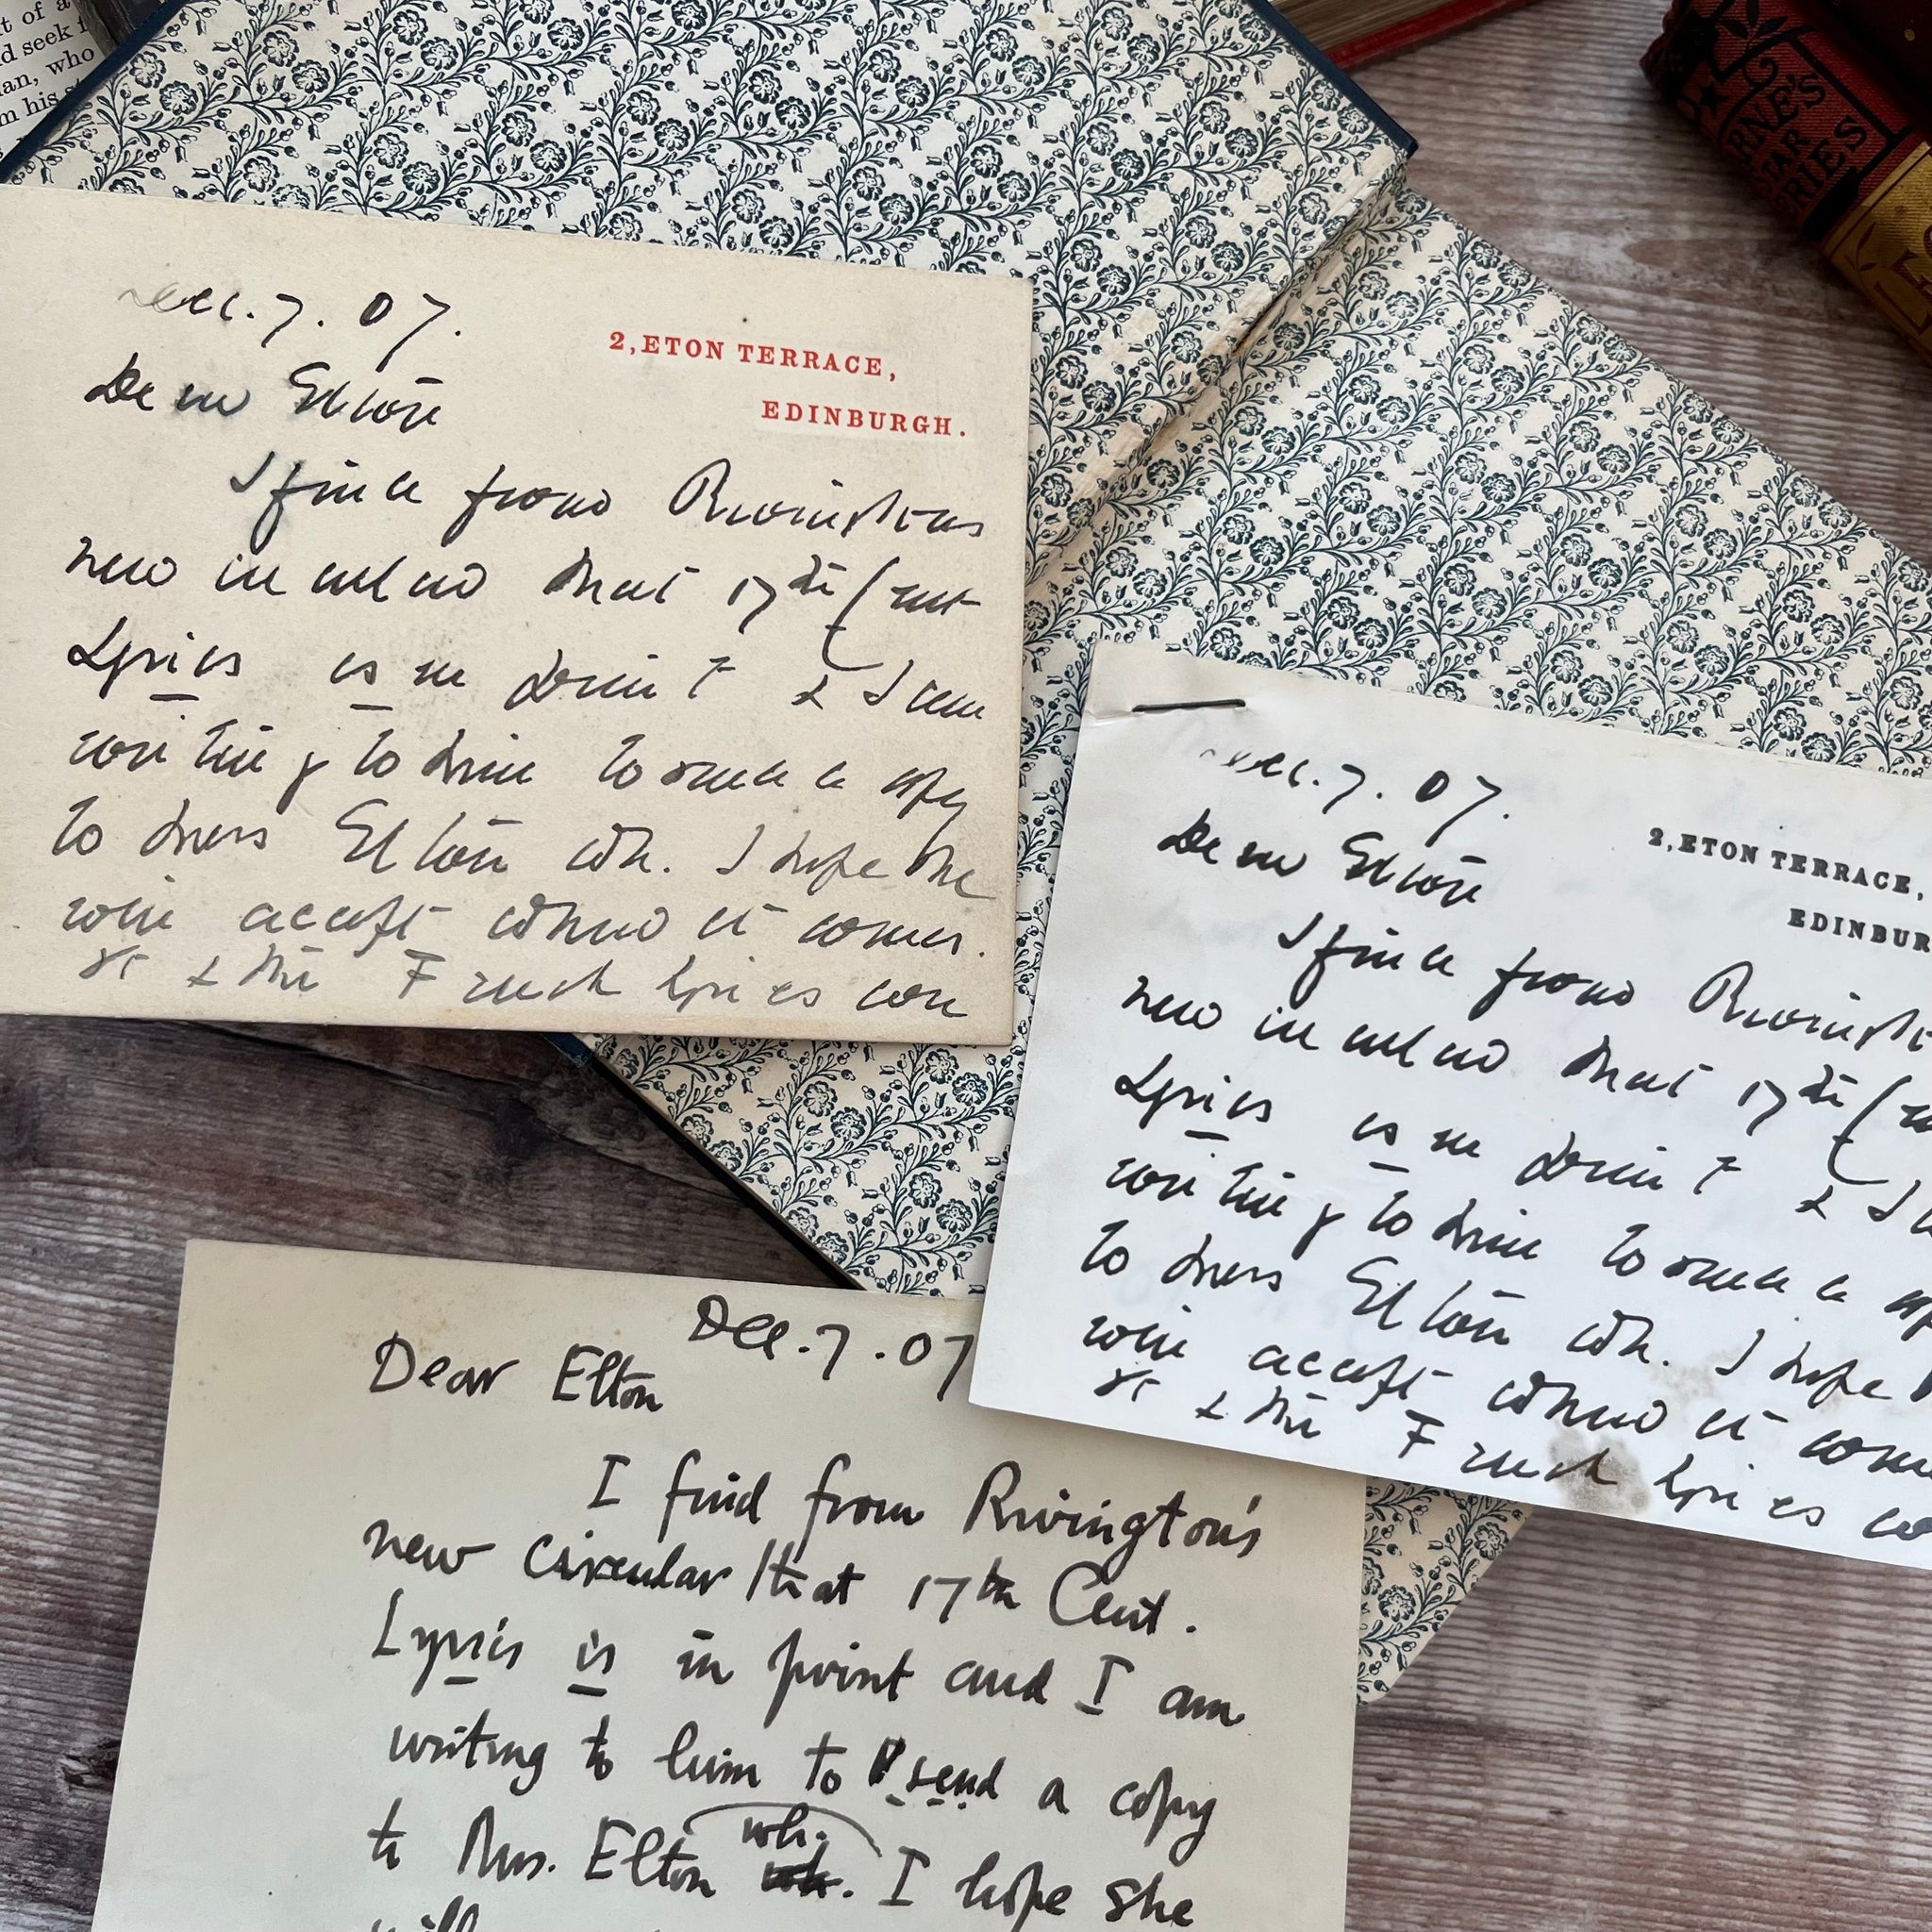 t of a
d seek
an, who
m his
RNE'S
TAR
ERIES
Dec. 7. 07.
2, ETON TERRACE,
EDINBURGH.
Dear Elton
I find from Rivingtons
new circular that 17th Cent
Lyrics is in print & I am
writing to him to send a copy
to Mrs Elton wh. I hope she
will accept when it comes.
& the French lyrics
Dec. 7. 07.
2, ETON TERRACE,
EDINBUR
Dear Elton
I find from
new circular that 17th
Lyrics is in print &
writing to him to send a
to Mrs Elton wh. I hope
will accept when it
& the French lyrics
Dec. 7. 07
Dear Elton
I find from Rivington's
new circular that 17th Cent.
Lyrics is in print and I am
writing to him to send a copy
to Mrs. Elton wh. I hope she
will